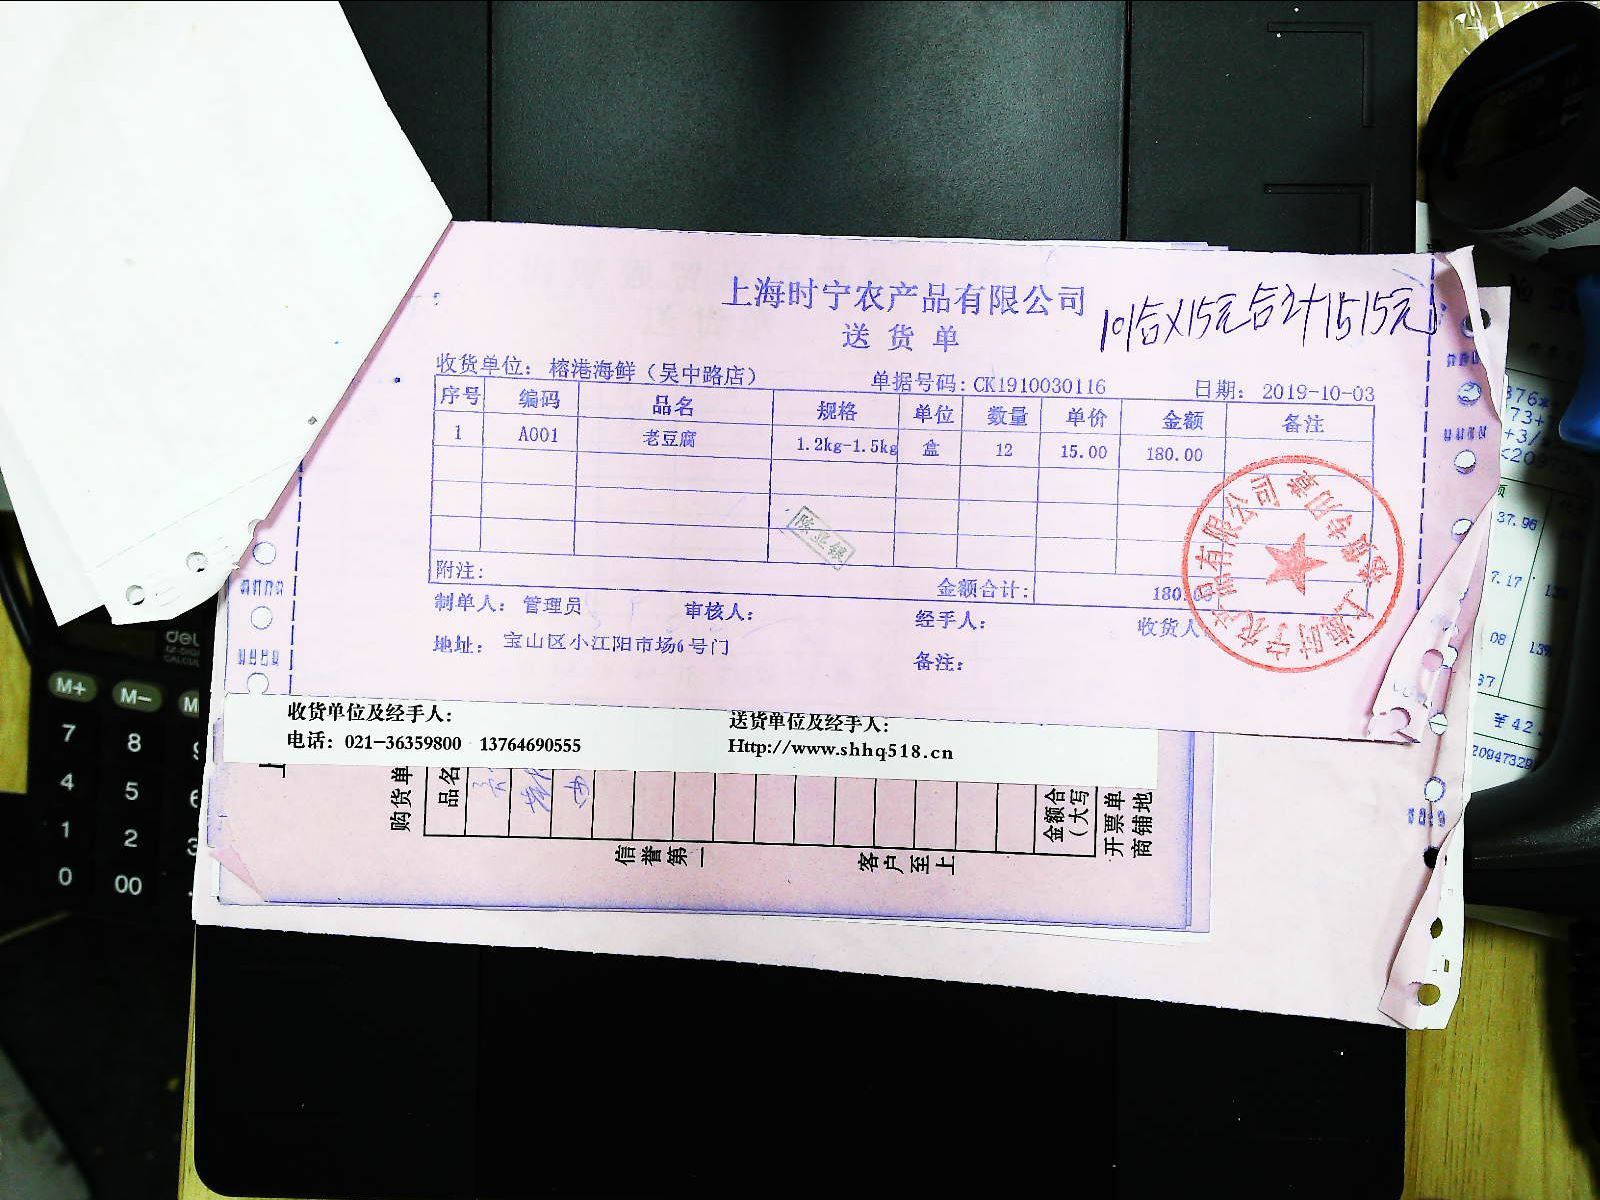 上海时宁农产品有限公司
送货单
101合×15元合计1515元
收货单位：榕港海鲜（吴中路店）
单据号码：CK1910030116
日期：2019-10-03
序号 编码 品名 规格 单位 数量 单价 金额 备注
1 A001 老豆腐 1.2kg-1.5kg 盒 12 15.00 180.00
附注：
金额合计：
制单人：管理员 审核人： 经手人： 收货人
地址：宝山区小江阳市场6号门
备注：
上海时宁农产品有限公司
收货单位及经手人：
送货单位及经手人：
电话：021-36359800 13764690555
Http://www.shhq518.cn
购货单
品名
金额合
（大写
开票单
商铺地
信誉第一
客户至上
M+ M−
7 8
4 5
1 2
0 00
37.96
7.17
08
37
¥42.